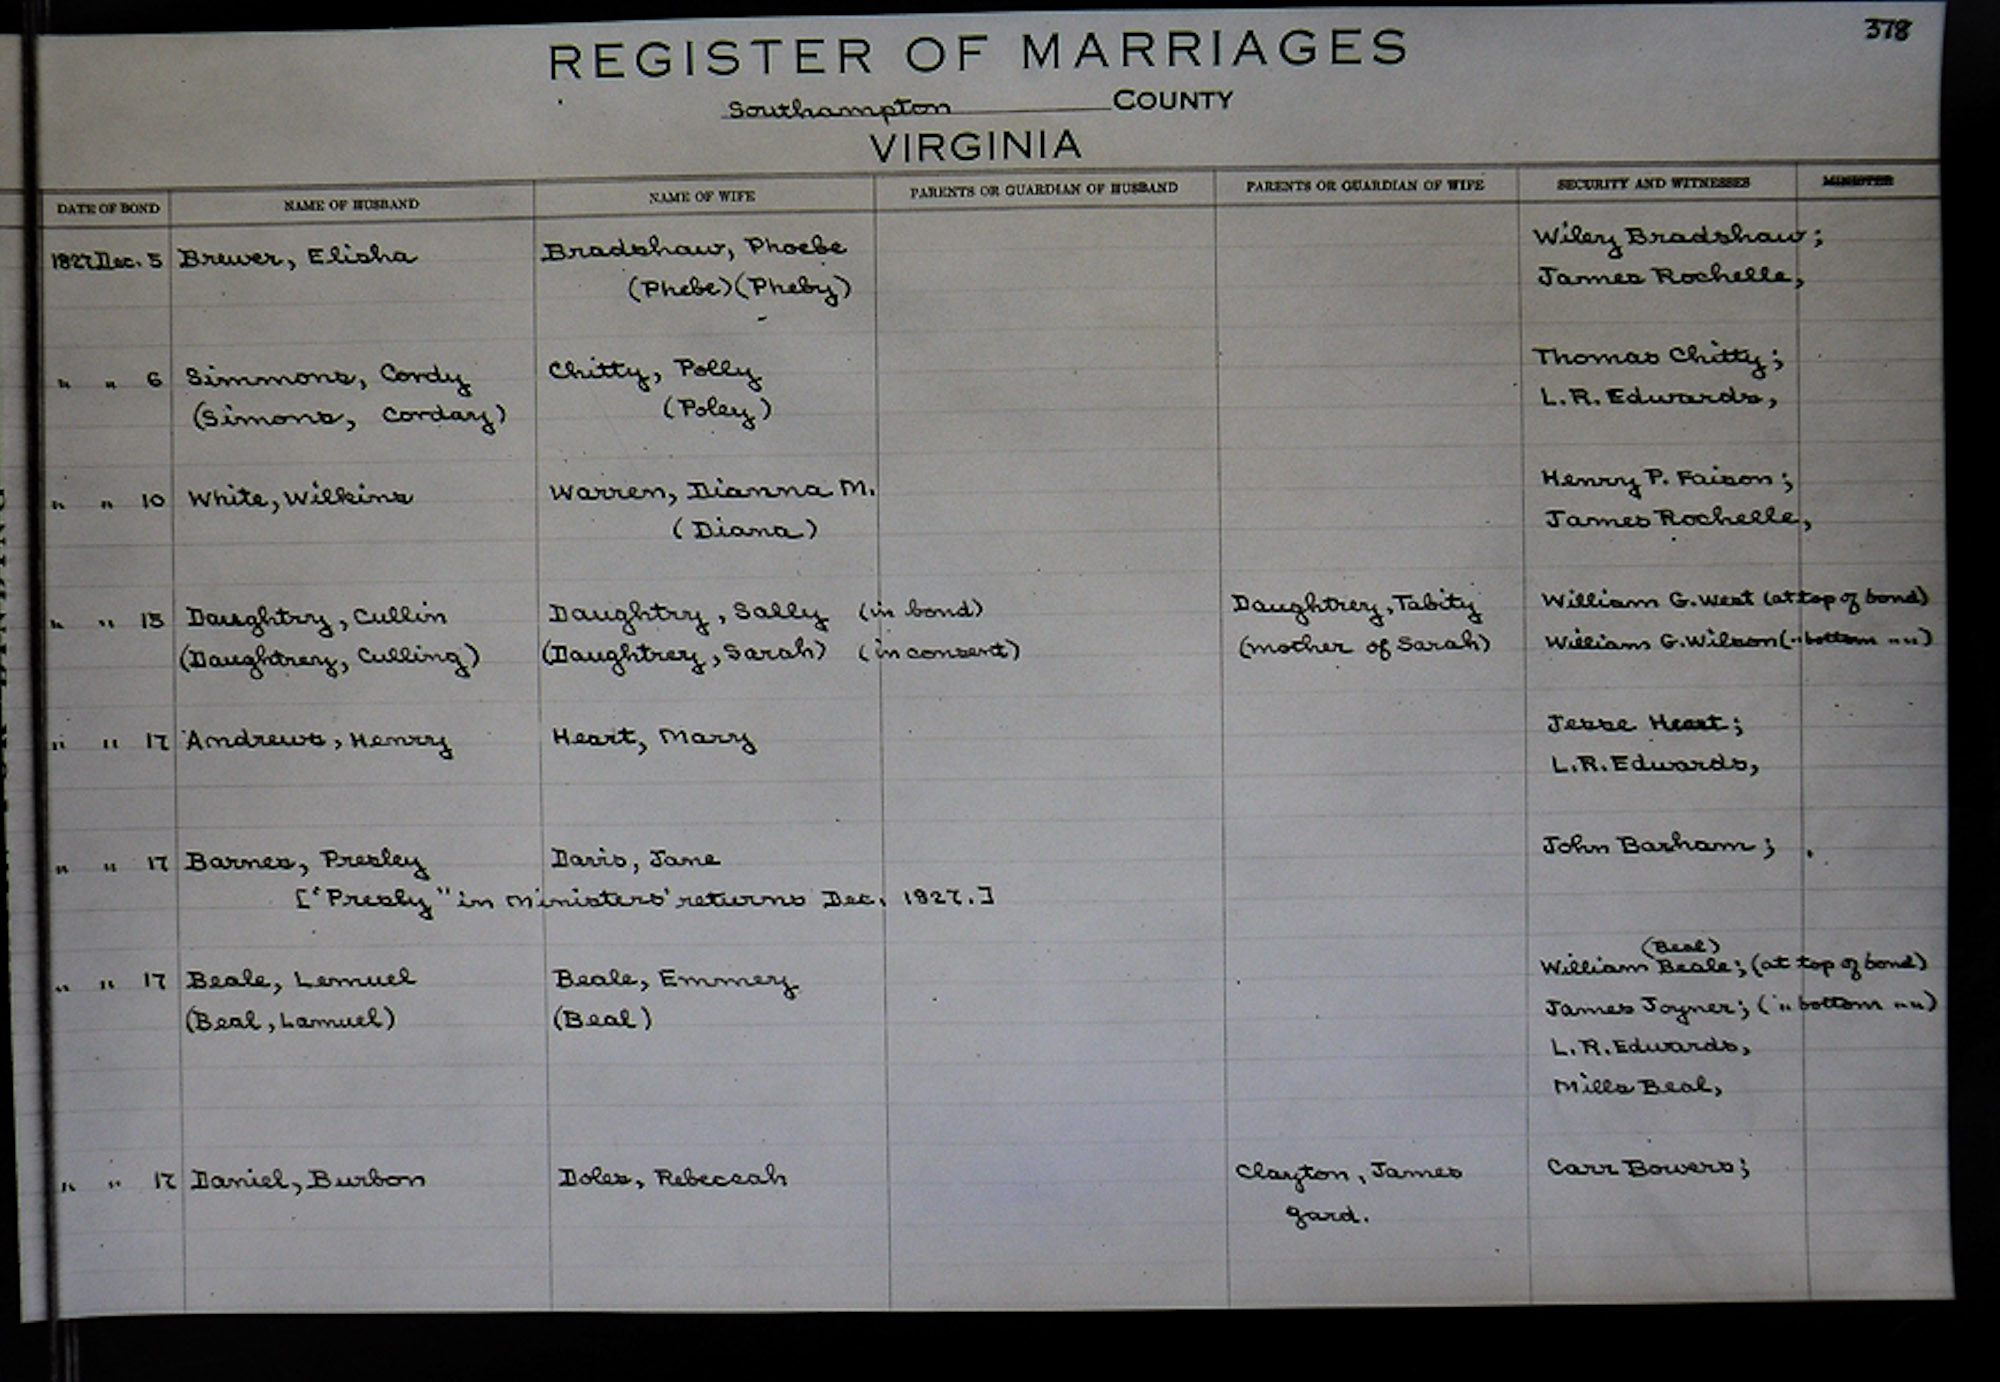 378
REGISTER OF MARRIAGES
Southampton COUNTY
VIRGINIA
DATE OF BOND NAME OF HUSBAND NAME OF WIFE PARENTS OR GUARDIAN OF HUSBAND PARENTS OR GUARDIAN OF WIFE SECURITY AND WITNESSES MINISTER
1827 Dec. 5 Brewer, Elisha Bradshaw, Phoebe Wiley Bradshaw;
(Phebe) (Pheby) James Rochelle,
" " 6 Simmons, Cordy Chitty, Polly Thomas Chitty;
(Simons, Corday) (Poley) L.R. Edwards,
" " 10 White, Wilkins Warren, Dianna M. Henry P. Faison;
(Diana) James Rochelle,
" " 15 Daughtry, Cullin Daughtry, Sally (in bond) Daughtrey, Tabity William G. West (at top of bond)
(Daughtrey, Culling) (Daughtrey, Sarah) (in consent) (mother of Sarah) William G. Wilson (" bottom " ")
" " 17 Andrews, Henry Heart, Mary Jesse Heart;
L.R. Edwards,
" " 17 Barnes, Presley Davis, Jane John Barham;
["Presly" in Ministers' returns Dec. 1827.]
(Beal)
" " 17 Beale, Lemuel Beale, Emmery William Beale; (at top of bond)
(Beal, Lamuel) (Beal) James Joyner; (" bottom " ")
L.R. Edwards,
Mills Beal,
" " 17 Daniel, Burbon Doles, Rebeccah Clayton, James Carr Bowers;
gard.